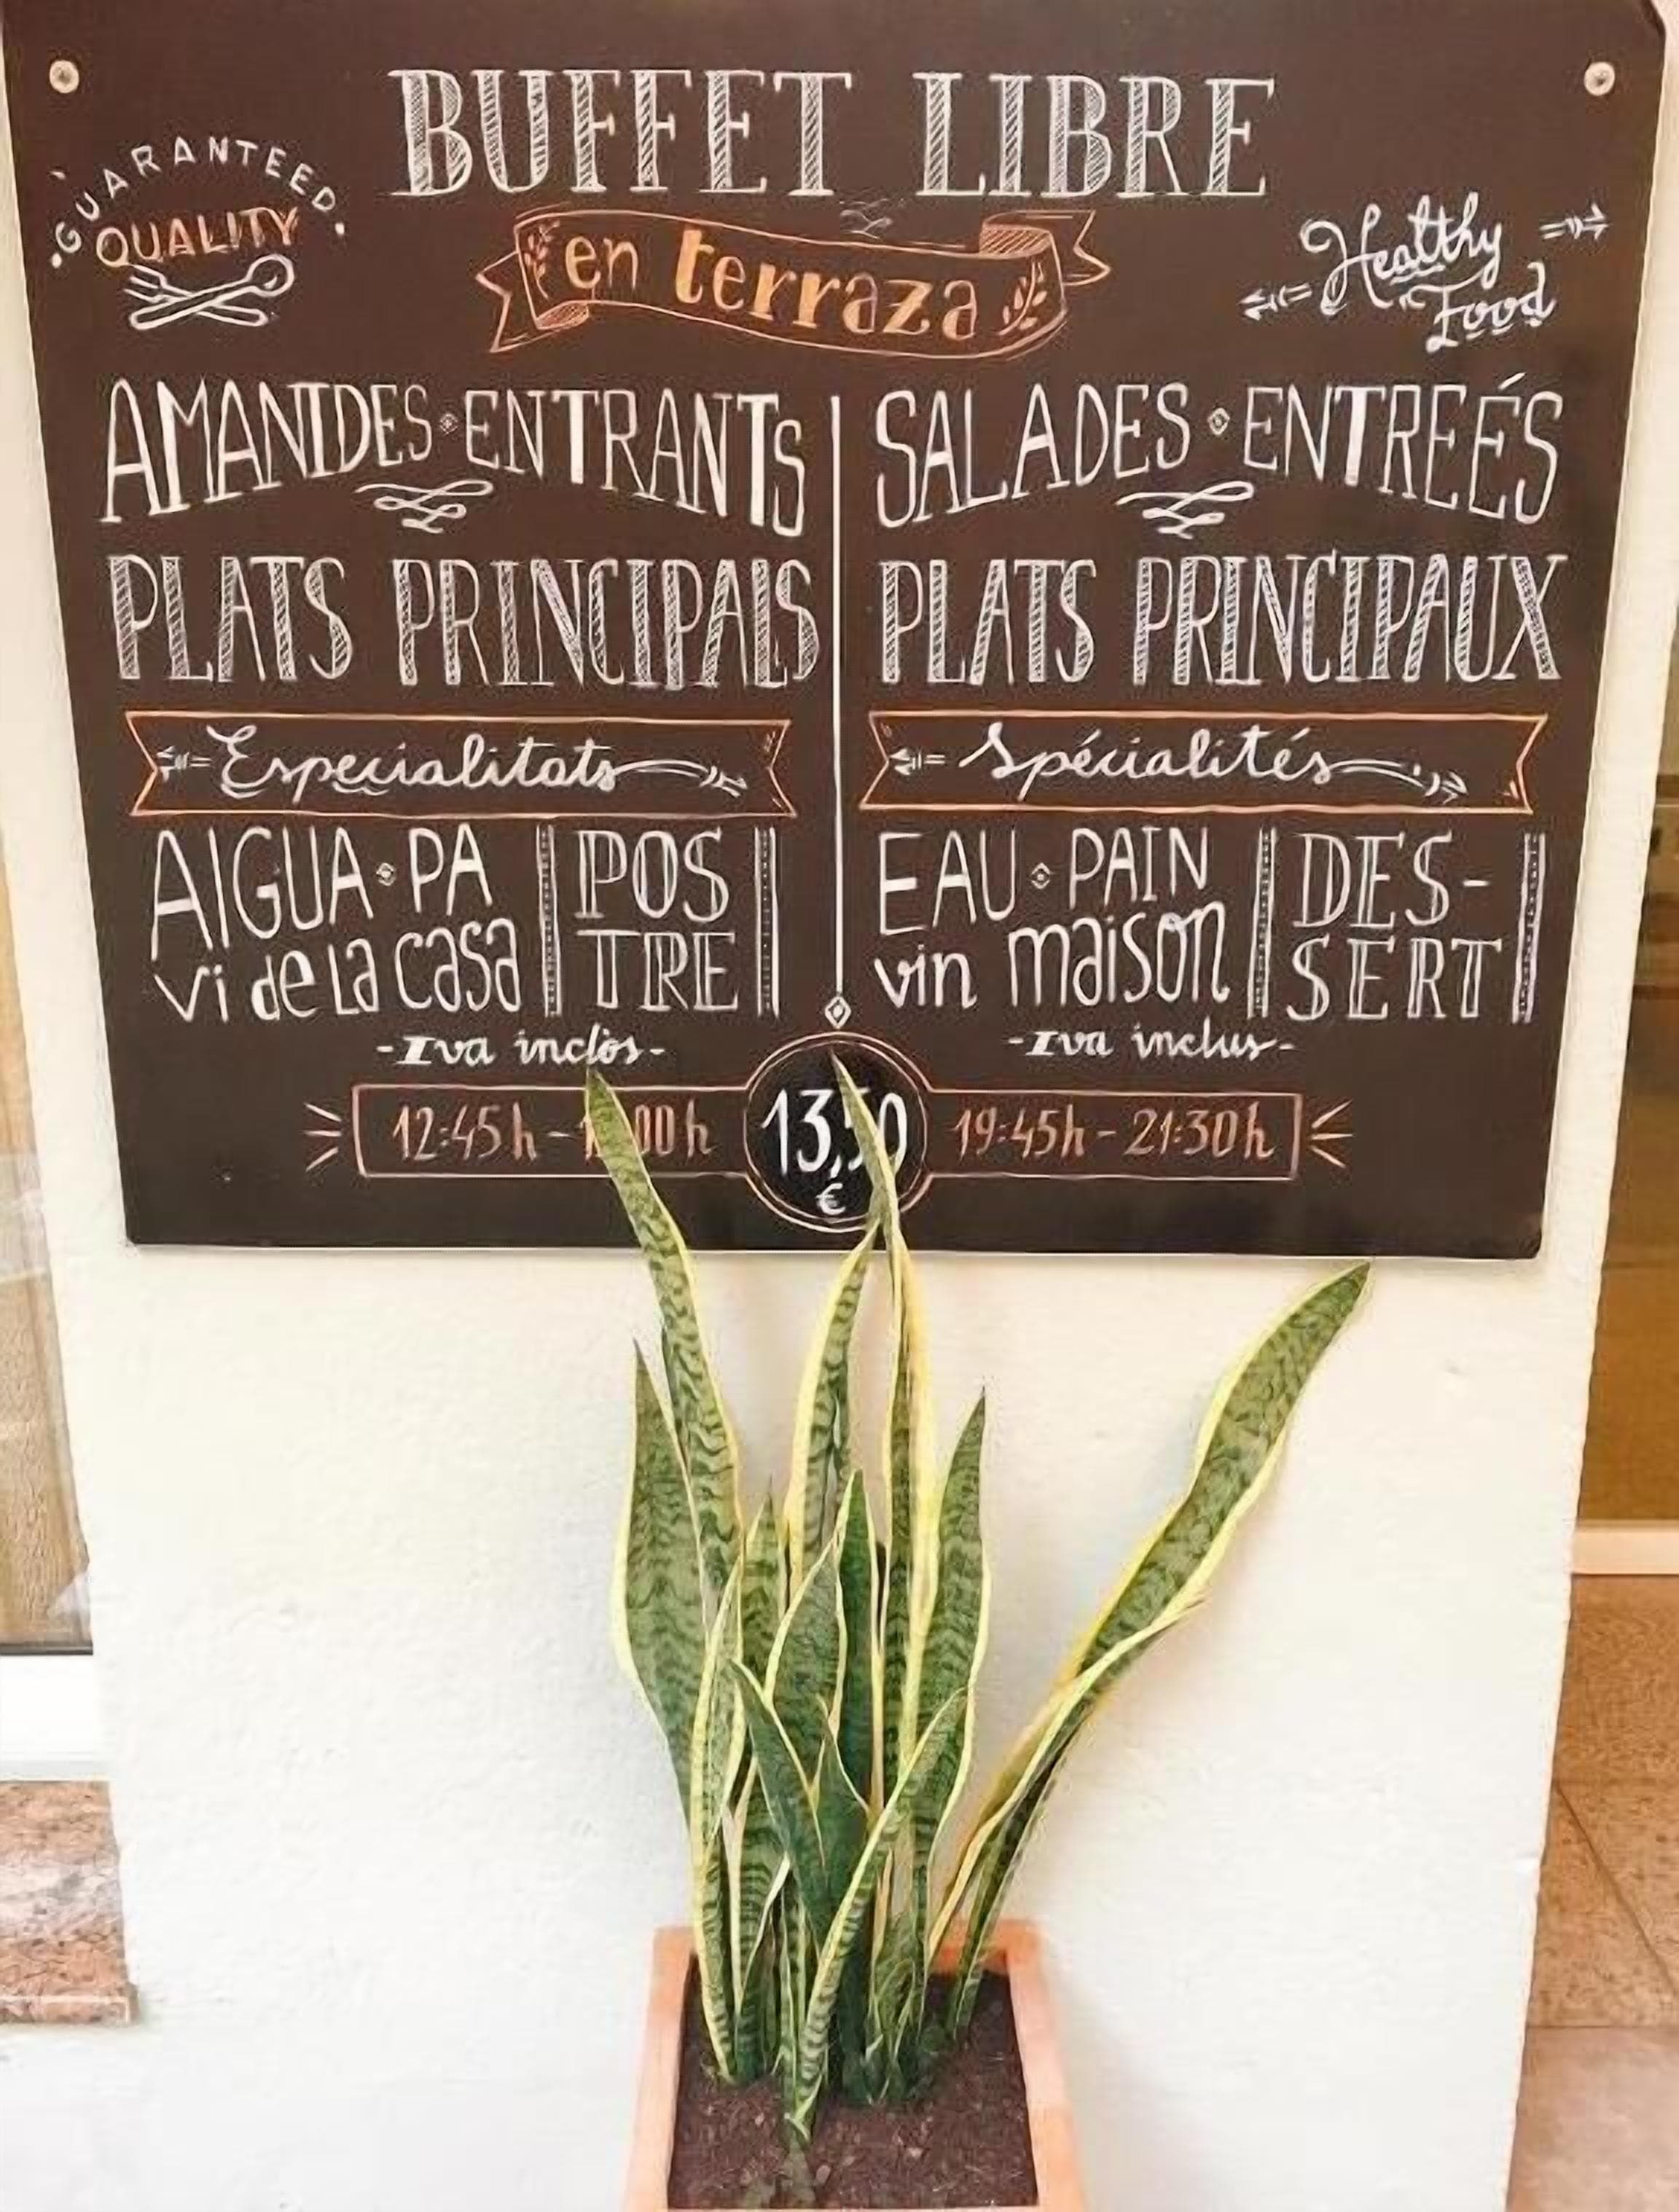 BUFFET LIBRE
GUARANTEED
QUALITY
en terraza
Healthy
Food
AMANIDES · ENTRANTS
PLATS PRINCIPALS
Especialitats
AIGUA · PA
vi de la casa
POS
TRE
- Iva inclòs -
SALADES · ENTREÉS
PLATS PRINCIPAUX
Spécialités
EAU · PAIN
vin maison
DES-
SERT
- Iva inclus -
12:45h -
13,50
€
19:45h - 21:30h